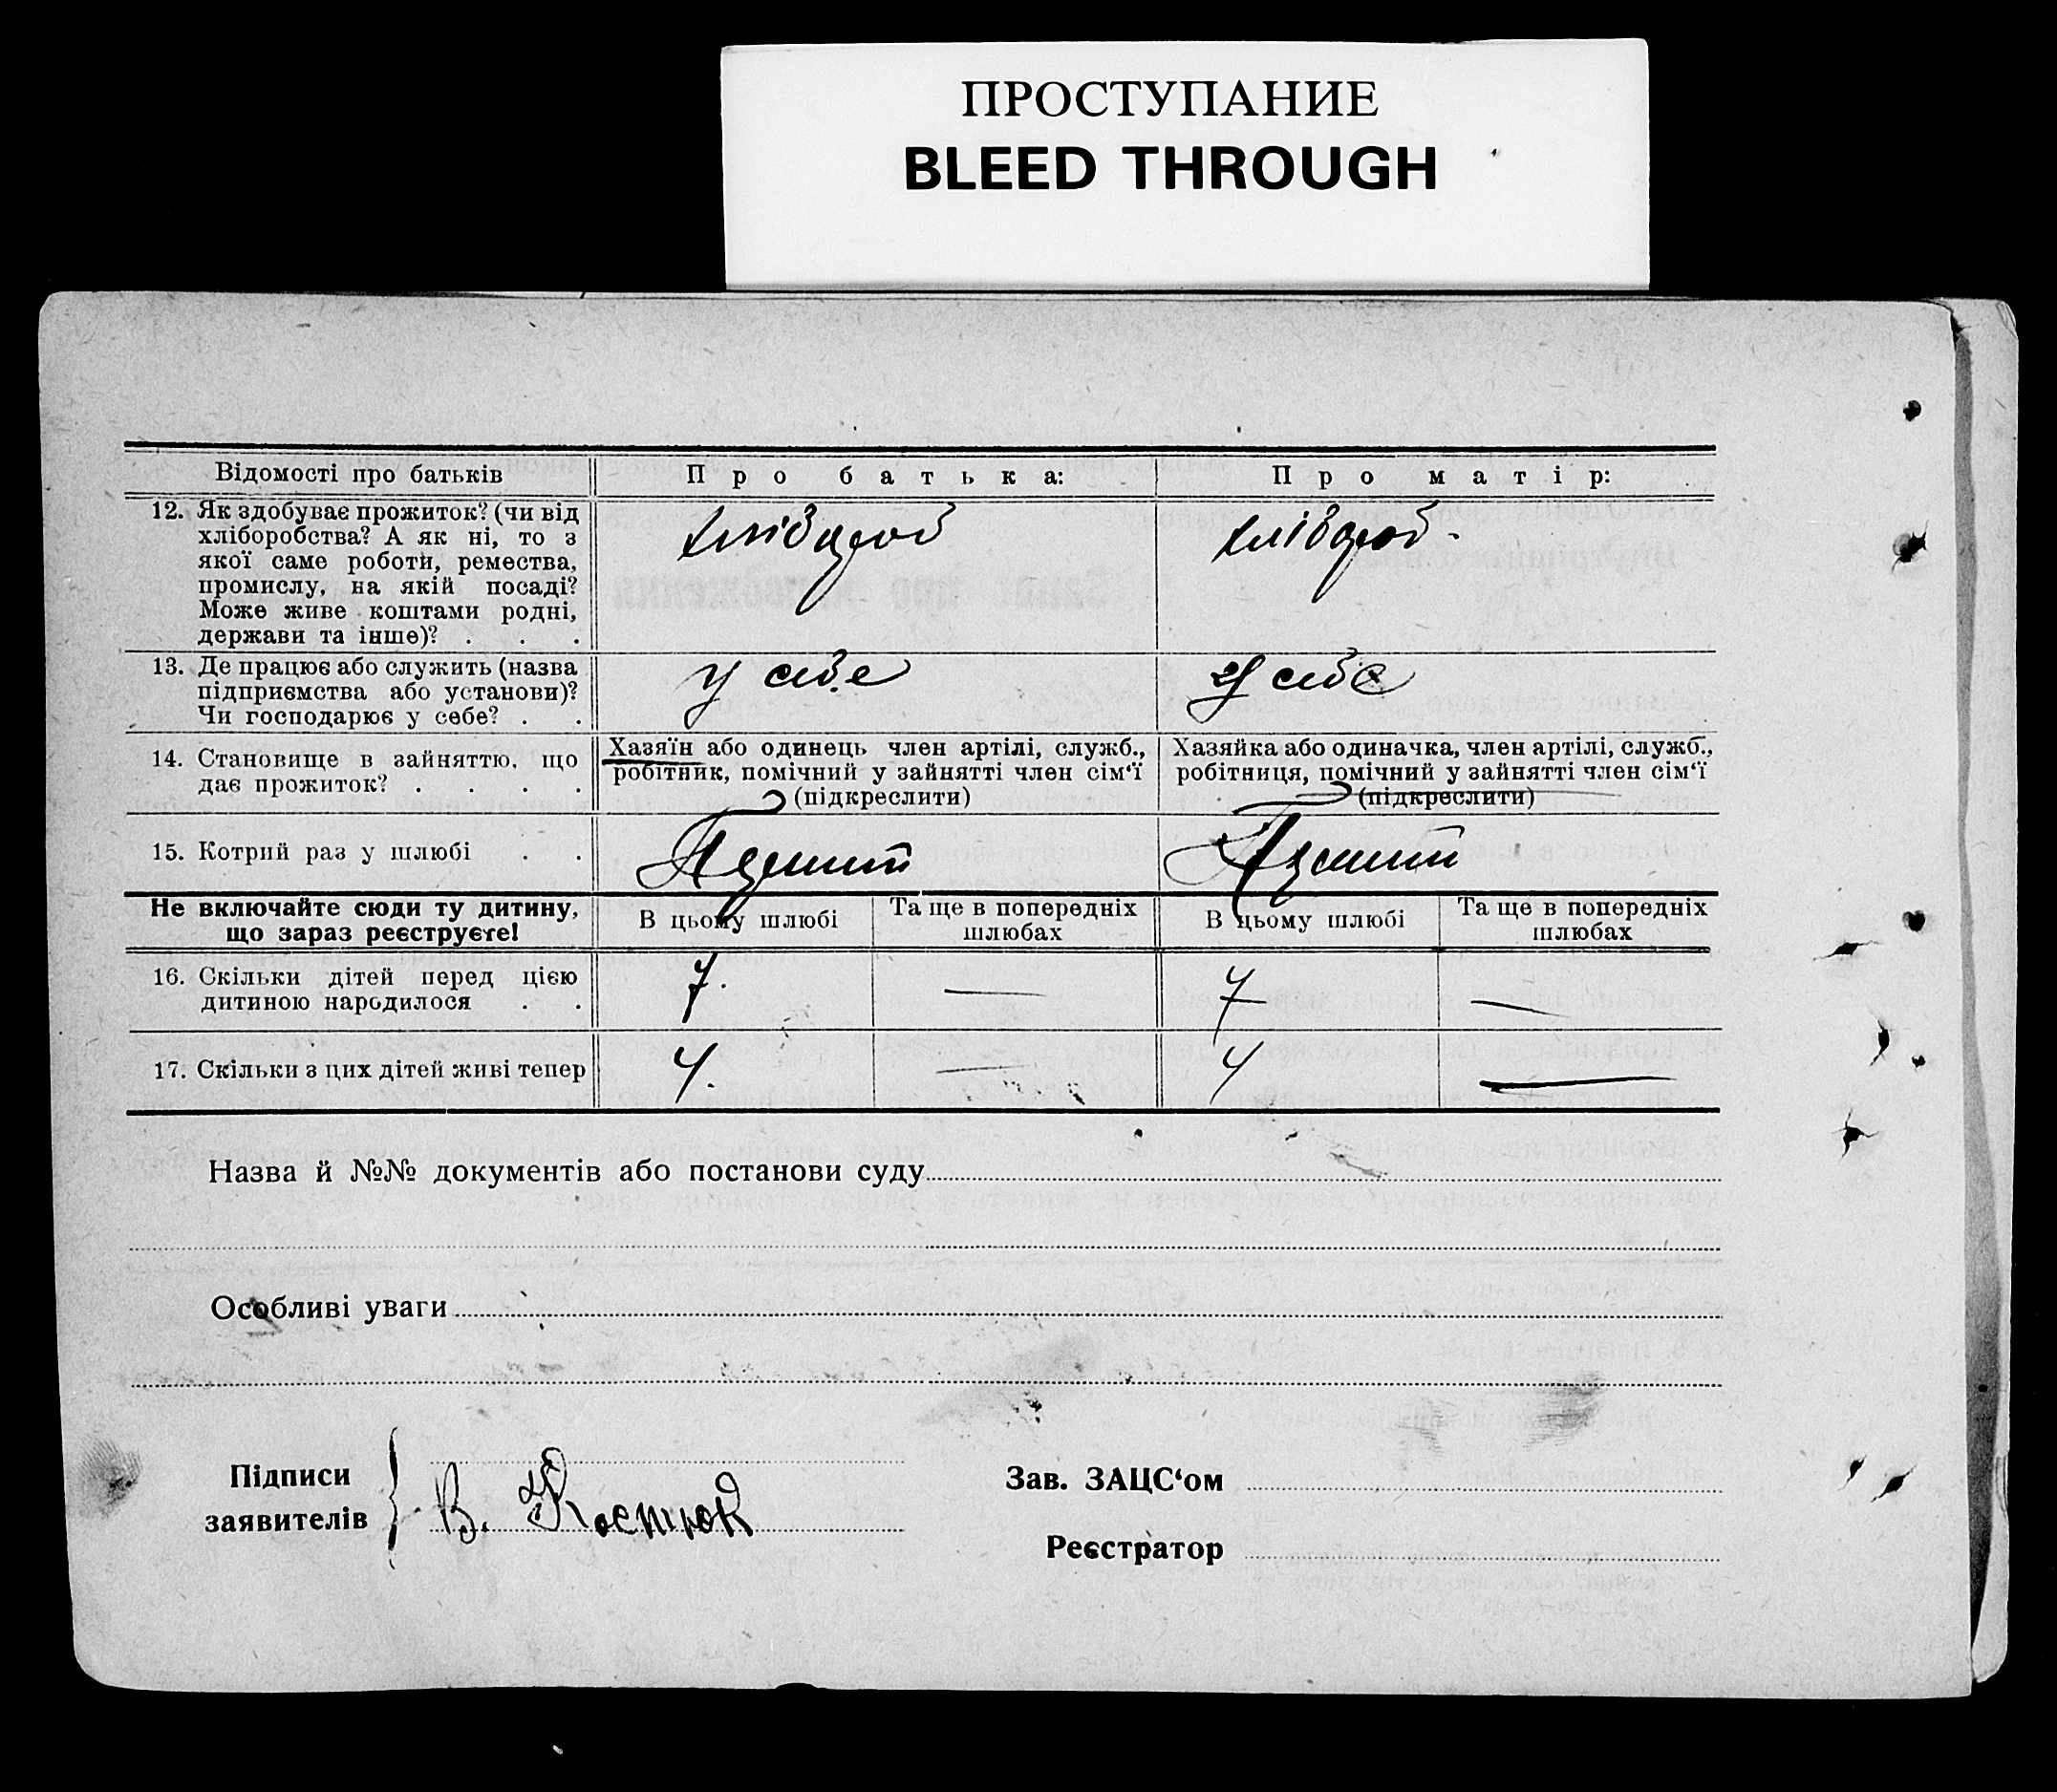 ПРОСТУПАНИЕ
BLEED THROUGH
Відомості про батьків
Про батька:
Про матір:
12. Як здобуває прожиток? (чи від
хліборобства? А як ні, то з
якої саме роботи, ремества,
промислу, на якій посаді?
Може живе коштами родні,
держави та інше)? . . .
хлібороб
хлібороб.
13. Де працює або служить (назва
підприємства або установи)?
Чи господарює у себе? . .
у себе
У себе
14. Становище в зайняттю, що
дає прожиток? . . . .
Хазяїн або одинець член артілі, служб.,
робітник, помічний у зайнятті член сім‘ї
(підкреслити)
Хазяйка або одиначка, член артілі, служб.,
робітниця, помічний у зайнятті член сім‘ї
(підкреслити)
15. Котрий раз у шлюбі . .
Перший
Перший
Не включайте сюди ту дитину,
що зараз реєструєте!
В цьому шлюбі
Та ще в попередніх
шлюбах
В цьому шлюбі
Та ще в попередніх
шлюбах
16. Скільки дітей перед цією
дитиною народилося . .
7.
—
7
—
17. Скільки з цих дітей живі тепер
4.
—
4
—
Назва й №№ документів або постанови суду
Особливі уваги
Підписи
заявителів
В. Костюк
Зав. ЗАЦС‘ом
Реєстратор